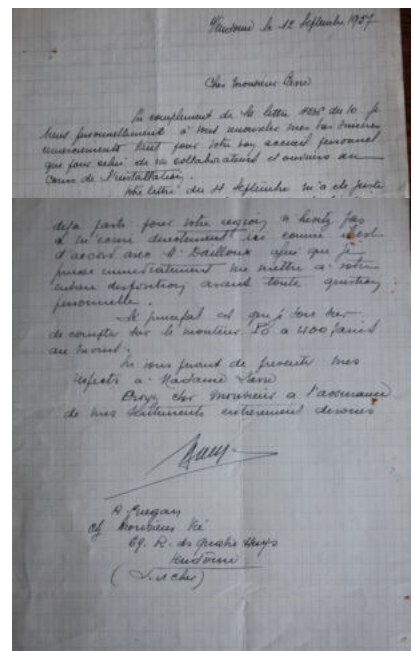 Vendome le 12 Septembre 1957
Cher Monsieur
En complement de la lettre du 10. je
tiens personnellement à vous renouveler mes bien sincères
remerciements tant pour votre bon accueil personnel
que pour celui de vos collaborateurs et ouvriers au
cours de l'installation.
Votre lettre du 4 Septembre m'a ete
deja parti pour votre region n'hesitez pas
a m'ecrire directement ici comme
d'accord avec Mr Dailloux afin que je
puisse immediatement me mettre a votre
entiere disposition avant toute question
personnelle.
Le principal est que je sois
de compter sur le monteur
au moins.
En vous priant de presenter mes
respects a Madame
Croyez cher Monsieur a l'assurance
de mes sentiments entierement devoues
Monsieur
69. R. des Quatre Huys
Vendôme
(L. et Cher)